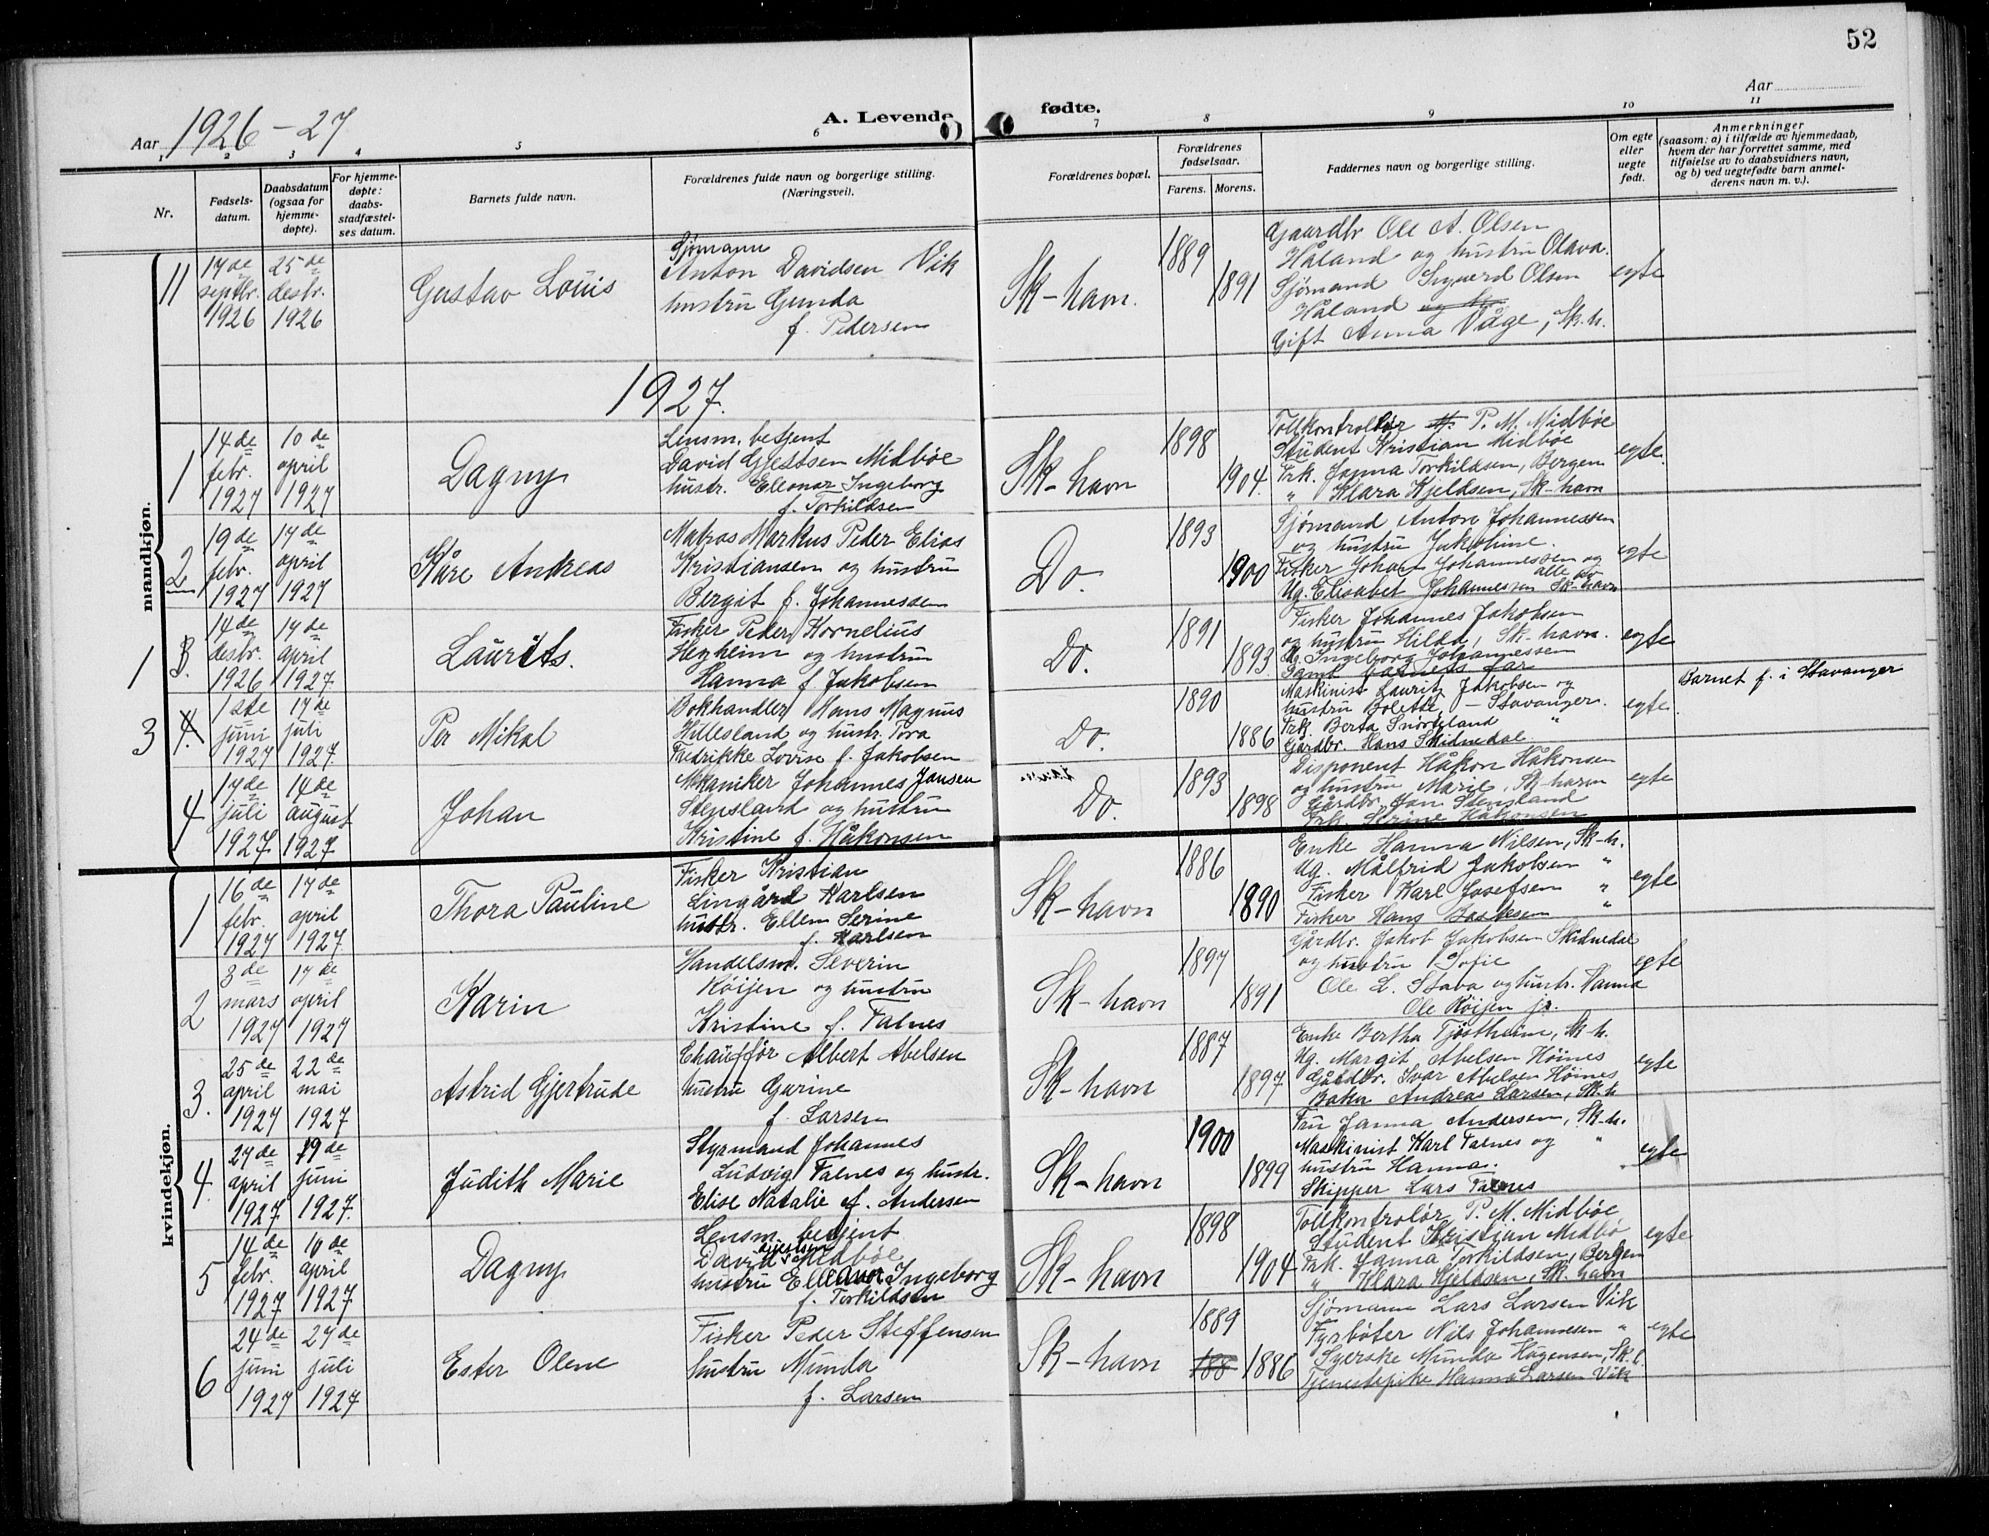 52
Aar 1926-27
A. Levende fødte.
Aar
1 2 3 4 5 6 7 8 9 10 11
Nr.
Fødsels-
datum.
Daabsdatum
(ogsaa for
hjemme-
døpte).
For hjemme-
døpte:
daabs-
stadfæstel-
ses datum.
Barnets fulde navn.
Forældrenes fulde navn og borgerlige stilling.
(Næringsvei).
Forældrenes bopæl.
Forældrenes
fødselsaar.
Farens. Morens.
Faddernes navn og borgerlige stilling.
Om egte
eller
uegte
født.
Anmerkninger
(saasom: a) i tilfælde av hjemmedaab,
hvem der har forrettet samme, med
tilføielse av to daabsvidners navn,
og b) ved uegtefødte barn anmel-
derens navn m. v.).
mandkjøn.
11
17de
septbr.
1926
25de
desbr.
1926
Gustav Louis
Sjømann
Anton Davidsen Vik
hustru Gunda
f. Pedersen
Sk-havn.
1889
1891
Gaardbr Ole A. Olsen
Håland og hustru Olava.
Sjømand Sigvard Olsen
Håland
Gift Anna Våge, Sk.h.
egte
1927.
1
14de
febr.
1927
10de
april
1927
Dagny
Lensm. betjent
David Gjertsen Midbøe
hustr. Eleonar Ingeborg
f. Torkildsen
Sk-havn
1898
1904.
Tollkontrollør P. M. Midbøe
Student Kristian Midbøe
Frk. Janna Torkildsen, Bergen
" Klara Kjeldsen, Sk-havn
egte.
2
19de
febr.
1927
17de
april
1927
Kåre Andreas
Matros Markus Peder Elias
Kristiansen og hustru
Bergit f. Johannessen
Do.
1893
1900
Sjømand Anton Johannessen
og hustru Jakobine.
Fisker Johan Johannessen og
Ug. Elisabet Johannessen alle av Sk-havn
egte
1 3.
14de
desbr.
1926
17de
april
1927.
Laurits.
Fisker Peder Kornelius
Hegheim og hustru
Hanna f. Jakobsen
Do.
1891
1893
Fisker Johannes Jakobsen
og hustru Hilda, Sk-havn.
Ug. Ingeborg Johannessen
Samt barnets far
egte
3 4.
1ste
juni
1927
17de
juli
1927.
Per Mikal
Bokhandler Hans Magnus
Hillesland og hustr. Tora
Fredrikke Lovise f. Jakobsen
Do.
1890
1886
Maskinist Laurits Jakobsen og
hustru Bolette, - Stavanger.
Frk. Berta Snørteland "
Gårdbr. Hans Skidnedal.
egte.
Barnet f. i Stavanger
4
17de
juli
1927.
14de
august
1927
Johan
Mekaniker Johannes Jansen
Stensland og hustru
Kristine f. Håkonsen
Do.
1893
1898
Disponent Håkon Håkonsen
og hustru Marie, Sk-havn
Gårdbr. Jan Stensland
Frk. Serine Håkonsen
egte
kvindekjøn.
1
16de
febr.
1927
17de
april
1927.
Thora Pauline
Fisker Kristian
Lingård Karlsen
hustr. Ellen Serine
f. Karlsen
Sk-havn
1886
1890
Enke Hanna Nilsen, Sk-h.
Ug. Målfrid Jakobsen "
Fisker Karl Josefsen "
Fisker Hans Isaksen "
egte
2
3de
mars
1927
17de
april
1927
Karin
Handelsm. Severin
Røijen og hustru
Kristine f. Falnes
Sk-havn
1897
1891
Gårdbr. Jakob Jakobsen Skidnedal
og hustru Sofie
Ole L. Stava og hustr. Hanna
Ole Røijen jr.
egte
3.
25de
april
1927
22de
mai
1927
Astrid Gjertrude
Chauffør Albert Abelsen
hustru Gurine
f. Larsen
Sk-havn
1887
1897
Enke Bertha Tjøstheim, Sk-h.
Ug. Margit Abelsen Høines
Gårdbr. Ivar Abelsen Høines
Baker Andreas Larsen, Sk-h
egte
4.
27de
april
1927.
19de
juni
1927.
Judith Marie
Styrmand Johannes
Ludvig Falnes og hustr.
Elise Natalie f. Andersen
Sk-havn
1900
1899
Fru Janna Andersen, Sk-h.
Maskinist Karl Falnes og "
hustru Hanna.
Skipper Lars Falnes
egte
5
14de
febr.
1927
10de
april
1927.
Dagny
Lensm. betjent
David Gjertsen Midbøe
hustru Eleanor Ingeborg
f. Torkildsen
Sk-havn
1898
1904
Tollkontrolør P. M. Midbøe
Student Kristian Midbø
Frk. Janna Torkildsen, Bergen
" Klara Kjeldsen, Sk.havn
egte
6
24de
juni
1927
27de
juli
1927
Ester Olene
Fisker Peder Steffensen
hustru Munda
f. Larsen
Sk-havn
1889
188 1886
Sjømann Lars Larsen Vik
Fyrbøter Nils Johannesen "
Syerske Munda Hågensen, Sk.h.
Tjenestepike Hanna Larsen Vik
egte